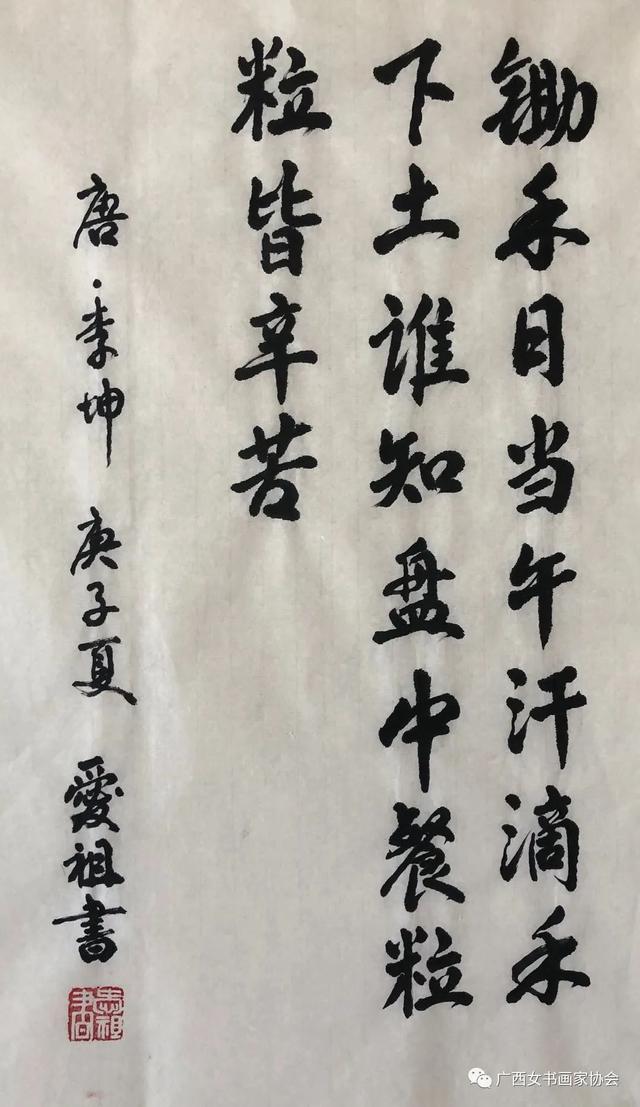 锄禾日当午汗滴禾
下土谁知盘中餐粒
粒皆辛苦
唐·李坤 庚子夏 愛祖書
广西女书画家协会